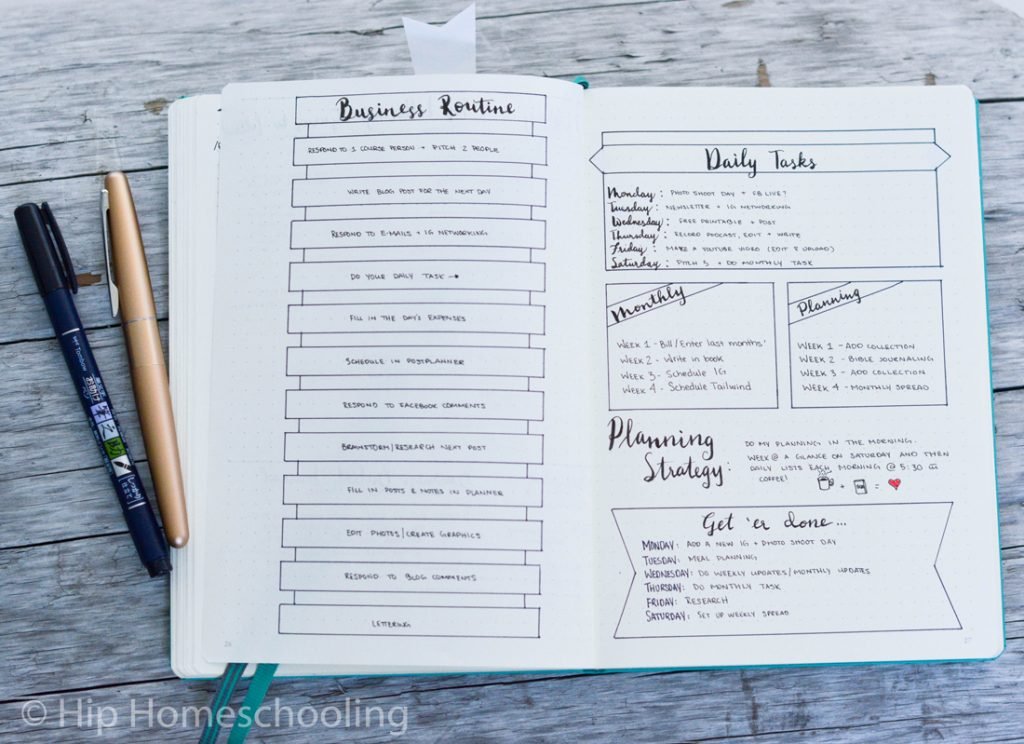 Business Routine
RESPOND TO 1 COURSE PERSON + PITCH 2 PEOPLE
WRITE BLOG POST FOR THE NEXT DAY
RESPOND TO E-MAILS + IG NETWORKING
DO YOUR DAILY TASK →
FILL IN THE DAY'S EXPENSES
SCHEDULE IN POSTPLANNER
RESPOND TO FACEBOOK COMMENTS
BRAINSTORM/RESEARCH NEXT POST
FILL IN POSTS & NOTES IN PLANNER
EDIT PHOTOS/CREATE GRAPHICS
RESPOND TO BLOG COMMENTS
LETTERING
26
Daily Tasks
Monday: PHOTO SHOOT DAY + FB LIVE?
Tuesday: NEWSLETTER + IG NETWORKING
Wednesday: FREE PRINTABLE + POST
Thursday: RECORD PODCAST, EDIT + WRITE
Friday: MAKE A YOUTUBE VIDEO (EDIT & UPLOAD)
Saturday: PITCH 5 + DO MONTHLY TASK
Monthly
WEEK 1 - Bill/Enter last months'
WEEK 2 - Write in book
WEEK 3 - Schedule IG
WEEK 4 - Schedule Tailwind
Planning
WEEK 1 - ADD COLLECTION
WEEK 2 - BIBLE JOURNALING
WEEK 3 - ADD COLLECTION
WEEK 4 - MONTHLY SPREAD
Planning
Strategy:
DO MY PLANNING IN THE MORNING.
WEEK @ A GLANCE ON SATURDAY AND THEN
DAILY LISTS EACH MORNING @ 5:30
COFFEE!
+ =
Get 'er done...
MONDAY: ADD A NEW IG + PHOTO SHOOT DAY
TUESDAY: MEAL PLANNING
WEDNESDAY: DO WEEKLY UPDATES/MONTHLY UPDATES
THURSDAY: DO MONTHLY TASK
FRIDAY: RESEARCH
SATURDAY: SET UP WEEKLY SPREAD
27
Tombow
© Hip Homeschooling